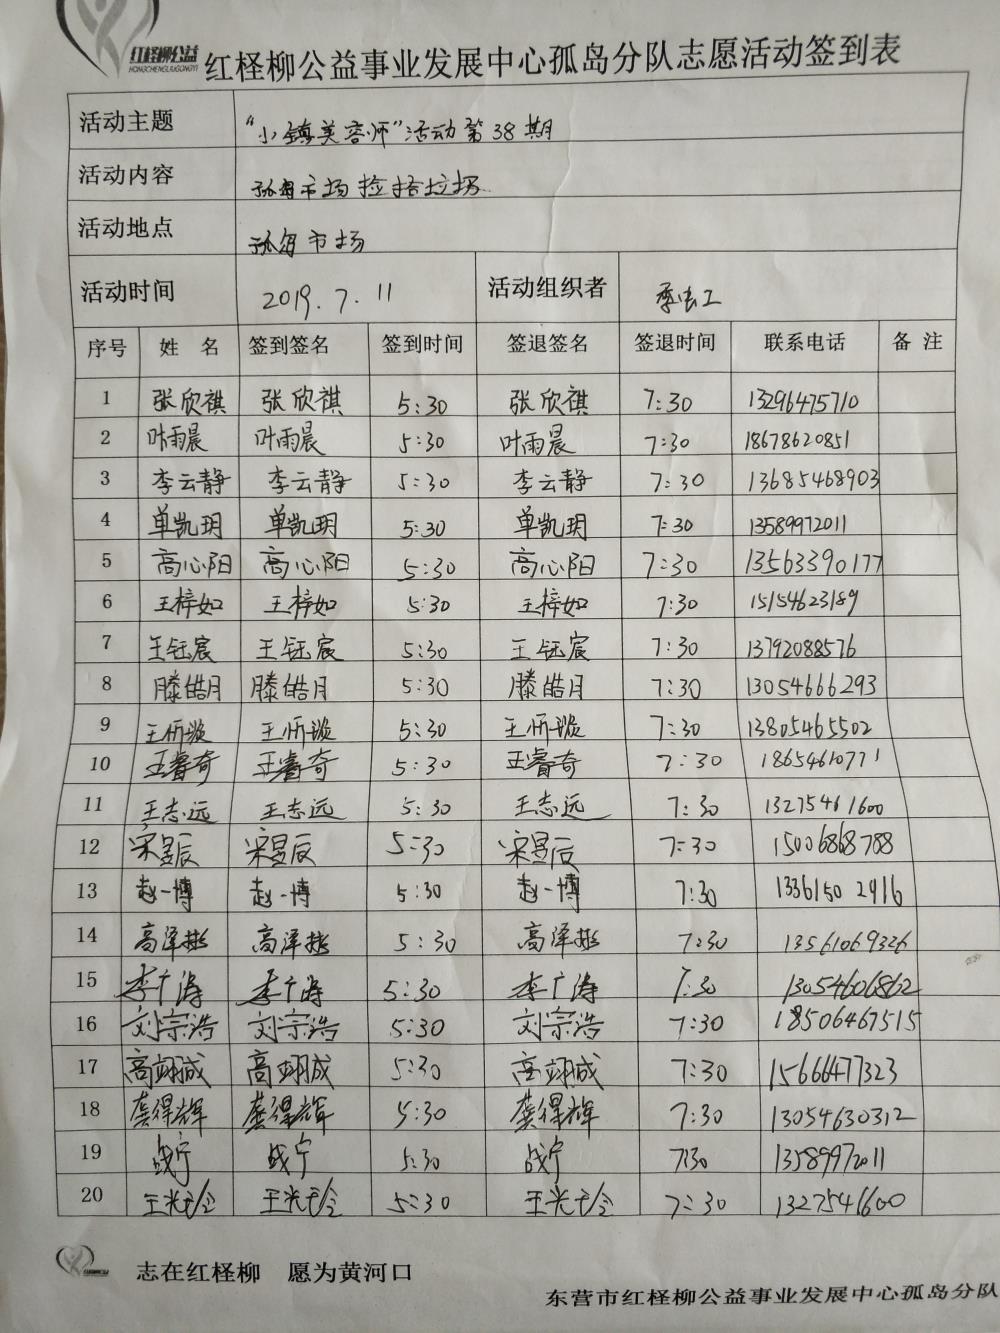 红柽柳公益
HONGCHENGLIUGONGYI
红柽柳公益事业发展中心孤岛分队志愿活动签到表
活动主题 “小镇美容师”活动第38期
活动内容 孤岛市场捡拾垃圾
活动地点 孤岛市场
活动时间 2019.7.11 活动组织者
序号 姓名 签到签名 签到时间 签退签名 签退时间 联系电话 备注
1 张欣祺 张欣祺 5:30 张欣祺 7:30 13296475710
2 叶雨晨 叶雨晨 5:30 叶雨晨 7:30 18678620851
3 李云静 李云静 5:30 李云静 7:30 13685468903
4 单凯玥 单凯玥 5:30 单凯玥 7:30 13589972011
5 高心阳 高心阳 5:30 高心阳 7:30 13563390177
6 王梓如 王梓如 5:30 王梓如 7:30 15154623189
7 王钰宸 王钰宸 5:30 王钰宸 7:30 13792088576
8 滕皓月 滕皓月 5:30 滕皓月 7:30 13054666293
9 王昕璇 王昕璇 5:30 王昕璇 7:30 13805465502
10 王睿奇 王睿奇 5:30 王睿奇 7:30 18654610771
11 王志远 王志远 5:30 王志远 7:30 13275461600
12 宋昱辰 宋昱辰 5:30 宋昱辰 7:30 15006868788
13 赵一博 赵一博 5:30 赵一博 7:30 13361502916
14 高泽彬 高泽彬 5:30 高泽彬 7:30 13561069326
15 李广涛 李广涛 5:30 李广涛 7:30 13054606862
16 刘宗浩 刘宗浩 5:30 刘宗浩 7:30 18506467515
17 高翊成 高翊成 5:30 高翊成 7:30 15666477323
18 龚得辉 龚得辉 5:30 龚得辉 7:30 13054630312
19 战宁 战宁 5:30 战宁 7:30 13589972011
20 5:30 7:30 13275461600
志在红柽柳 愿为黄河口
东营市红柽柳公益事业发展中心孤岛分队